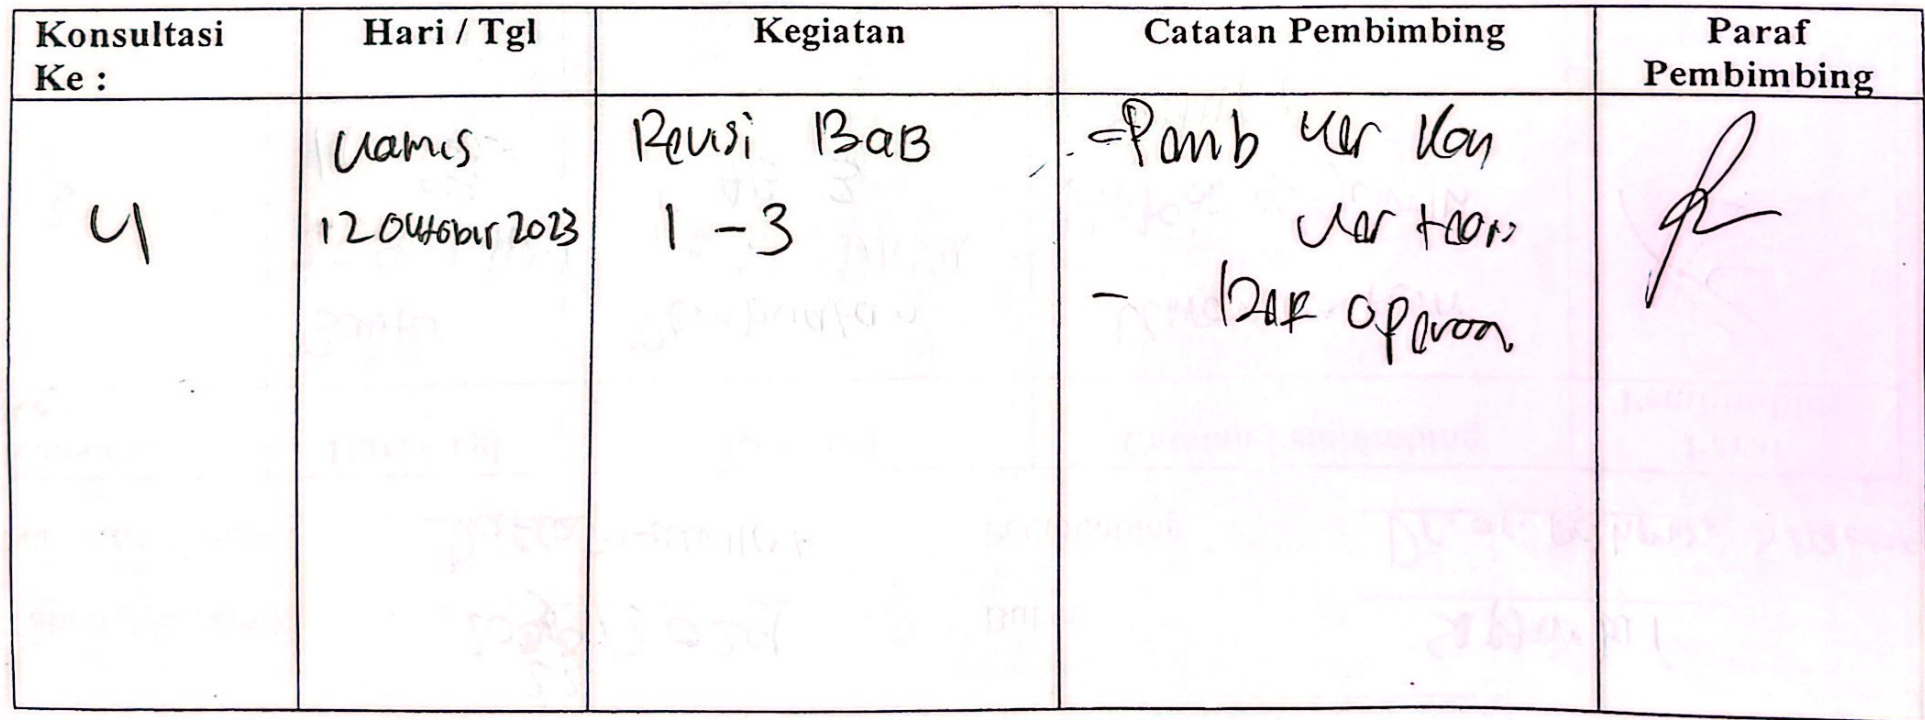 Konsultasi Ke :
Hari / Tgl
Kegiatan
Catatan Pembimbing
Paraf Pembimbing
4
Kamis
12 Oktober 2023
Revisi BaB
1 - 3
- Pemb ker Kon
ker teori
- DeF operaon